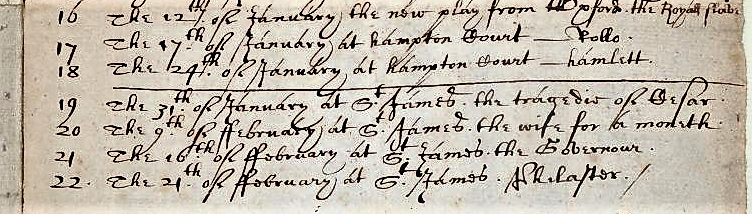 16 The 12th of January, the new play from Oxford. the Royall slave
17 The 17th of January at hampton Court — Rollo.
18 The 24th of January at hampton Court — hamlett.
19 The 31th of January at St James. the tragedie of Cesar
20 The 9th of ffebruary at St James. the wife for a moneth.
21 The 16th of ffebruary at St James. the Governour.
22. The 21th of ffebruary at St James. Philaster. /